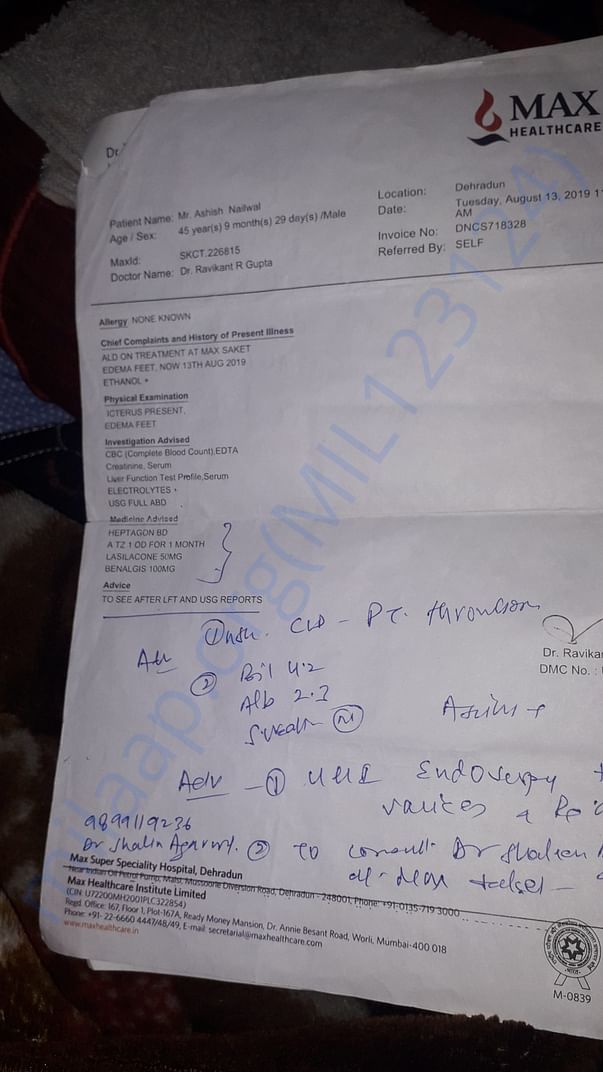 MAX
HEALTHCARE
Dr.
Patient Name: Mr. Ashish Nailwal
Age / Sex: 45 year(s) 9 month(s) 29 day(s) /Male
MaxId: SKCT.226815
Doctor Name: Dr. Ravikant R Gupta
Location: Dehradun
Date: Tuesday, August 13, 2019 11
AM
Invoice No: DNCS718328
Referred By: SELF
Allergy NONE KNOWN
Chief Complaints and History of Present Illness
ALD ON TREATMENT AT MAX SAKET
EDEMA FEET, NOW 13TH AUG 2019
ETHANOL +
Physical Examination
ICTERUS PRESENT,
EDEMA FEET
Investigation Advised
CBC (Complete Blood Count),EDTA
Creatinine, Serum
Liver Function Test Profile,Serum
ELECTROLYTES +
USG FULL ABD
Medicine Advised
HEPTAGON BD
A TZ 1 OD FOR 1 MONTH
LASILACONE 50MG
BENALGIS 100MG
Advice
TO SEE AFTER LFT AND USG REPORTS
① CLD - PT. thrombosis
Dr. Ravika
DMC No. :
② Bil 4.2
Alb 2.3
Adv - ① UGI Endoscopy
varices
9899119236
Dr Shalin Agarwal. ② To consult Dr Shalien
at max
Max Super Speciality Hospital, Dehradun
Near Indian Oil Petrol Pump, Malsi, Mussoorie Diversion Road, Dehradun - 248001, Phone: +91-0135-719 3000
Max Healthcare Institute Limited
(CIN: U72200MH2001PLC322854)
Regd. Office: 167, Floor 1, Plot-167A, Ready Money Mansion, Dr. Annie Besant Road, Worli, Mumbai-400 018
Phone: +91- 22-6660 4447/48/49, E-mail: secretarial@maxhealthcare.com
www.maxhealthcare.in
M-0839
milaap.org(MIL123124)